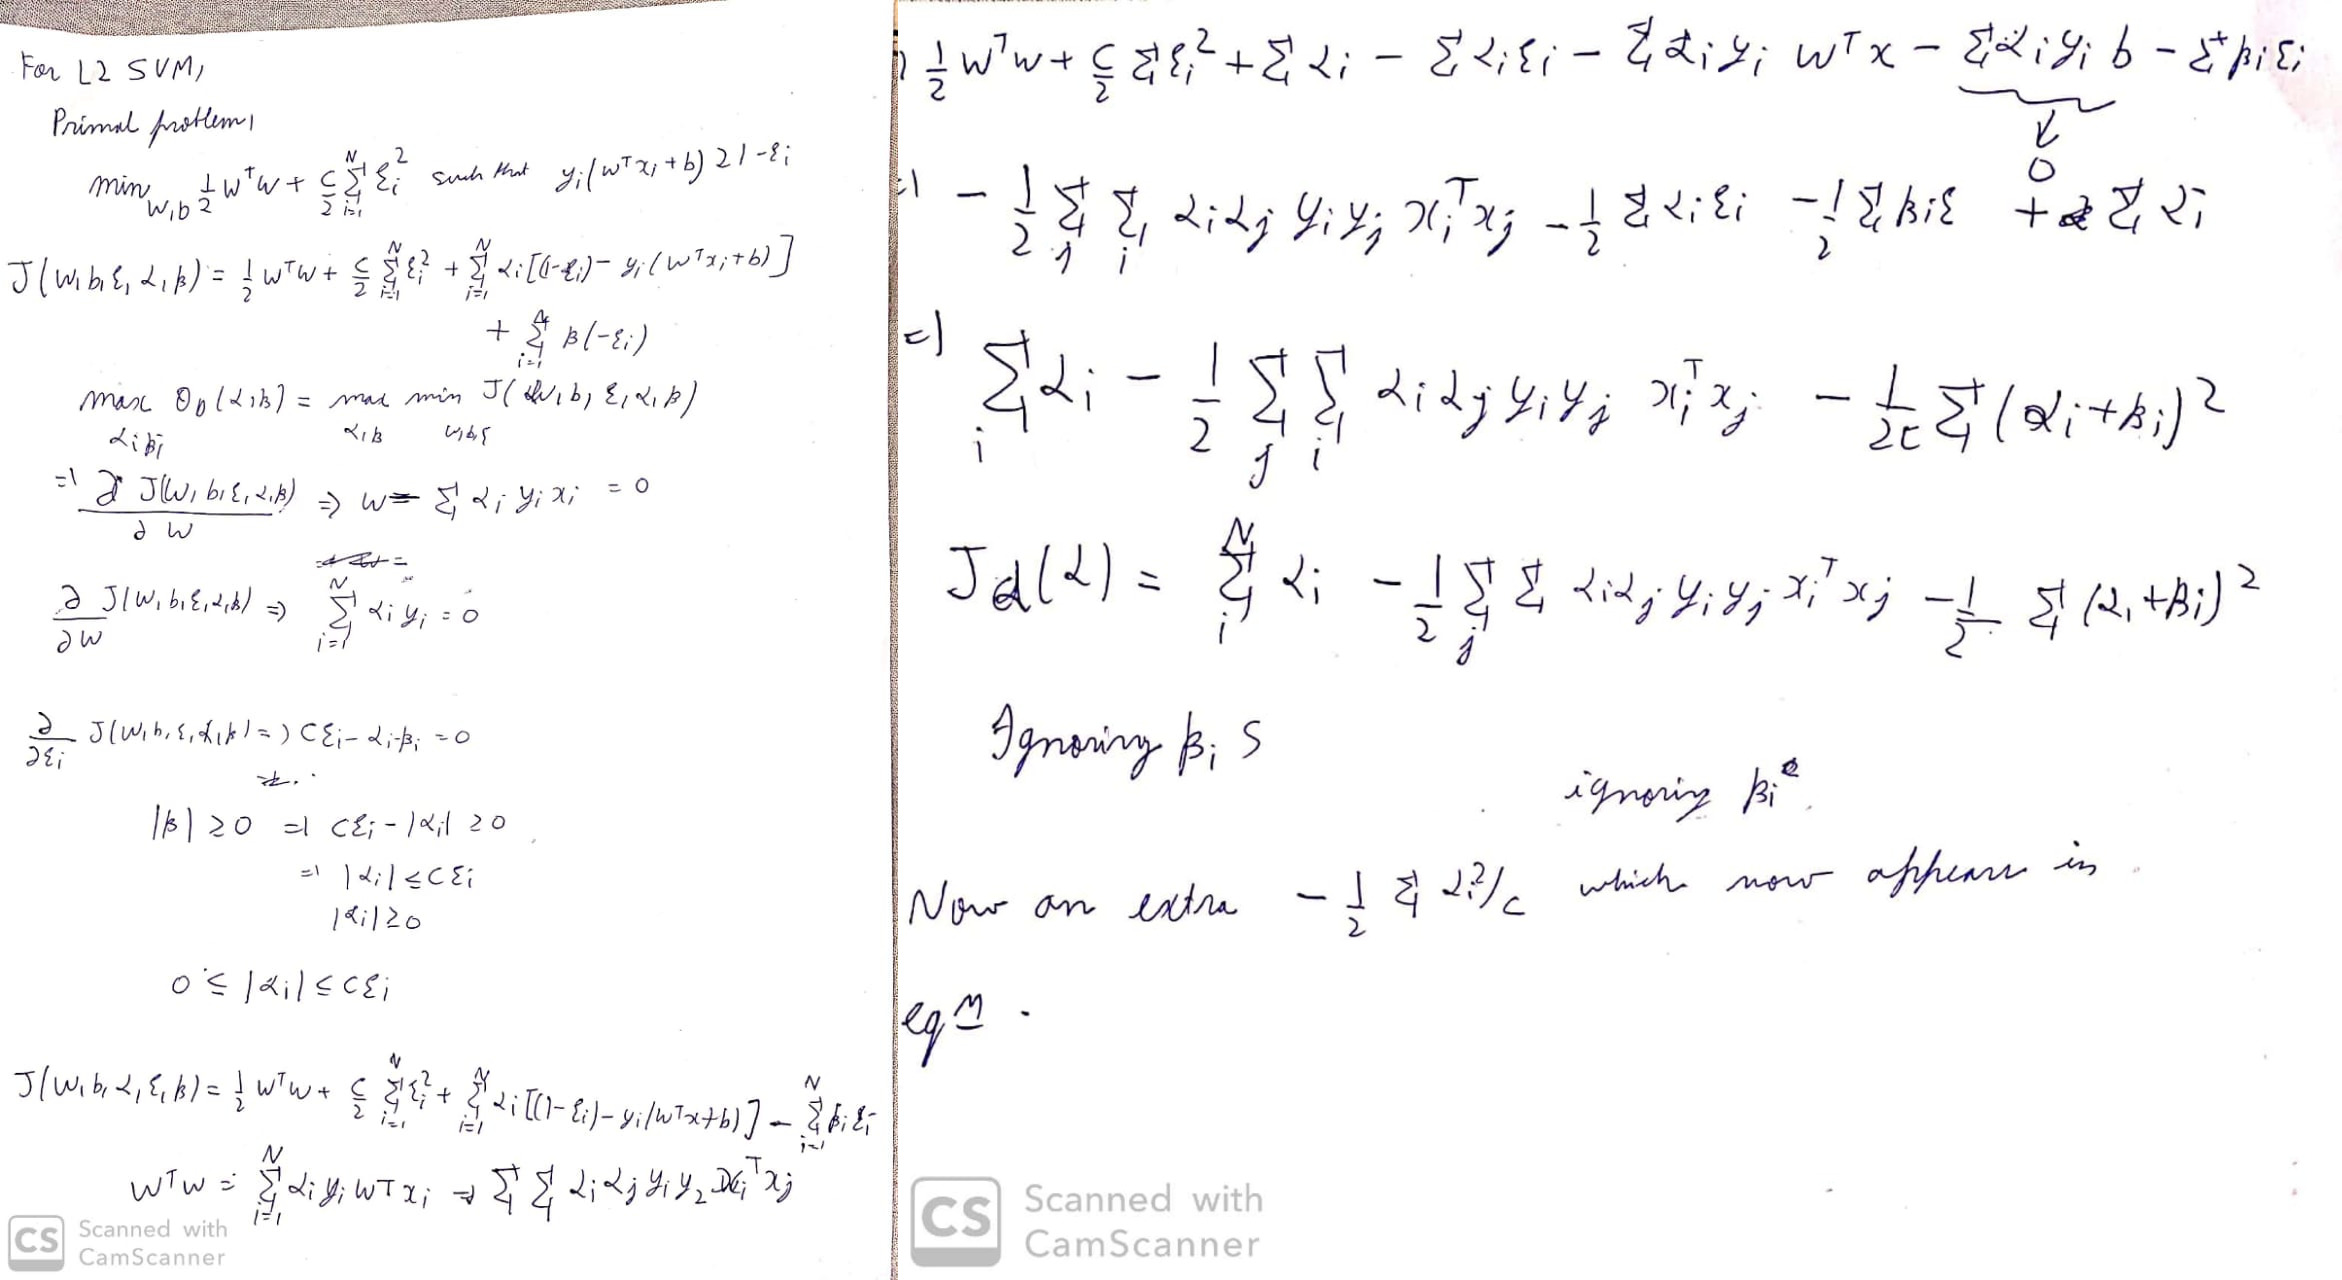 For L2 SVM,
Primal problem,
min_{w,b} 1/2 wᵀw + C/2 Σ_{i=1}^{N} ξi² such that yi(wᵀxi+b) ≥ 1-ξi
J(w,b,ξ,α,β) = 1/2 wᵀw + C/2 Σ_{i=1}^{N} ξi² + Σ_{i=1}^{N} αi[(1-ξi) - yi(wᵀxi+b)]
+ Σ_{i=1}^{N} β(-ξi)
max_{αi βi} θD(α,β) = max_{α,β} min_{w,b,ξ} J(w,b,ξ,α,β)
=> ∂J(w,b,ξ,α,β)/∂w ⇒ w - Σ αi yi xi = 0
∂J(w,b,ξ,α,β)/∂w ⇒ Σ_{i=1}^{N} αi yi = 0
∂/∂ξi J(w,b,ξ,α,β) => Cξi - αi - βi = 0
|β| ≥ 0 => Cξi - |αi| ≥ 0
=> |αi| ≤ Cξi
|αi| ≥ 0
0 ≤ |αi| ≤ Cξi
J(w,b,α,ξ,β) = 1/2 wᵀw + C/2 Σ_{i=1}^{N} ξi² + Σ_{i=1}^{N} αi[(1-ξi) - yi(wᵀx+b)] - Σ_{i=1}^{N} βiξi
wᵀw = Σ_{i=1}^{N} αi yi wᵀxi ⇒ Σ Σ αi αj yi y2 xiᵀxj
CS Scanned with
CamScanner
1/2 wᵀw + C/2 Σ ξi² + Σ αi - Σ αiξi - Σ αi yi wᵀx - Σ αi yi b - Σ βiξi
↓
0
=> - 1/2 Σ_j Σ_i αi αj yi yj xiᵀxj - 1/2 Σ αiξi - 1/2 Σ βiξ + Σ αi
=> Σ_i αi - 1/2 Σ_j Σ_i αi αj yi yj xiᵀxj - 1/2C Σ (αi+βi)²
Jd(α) = Σ_i^N αi - 1/2 Σ_j Σ αi αj yi yj xiᵀxj - 1/2 Σ (αi+βi)²
Ignoring βi s
ignoring βi
Now an extra - 1/2 Σ αi²/C which now appears in
eqn.
CS Scanned with
CamScanner